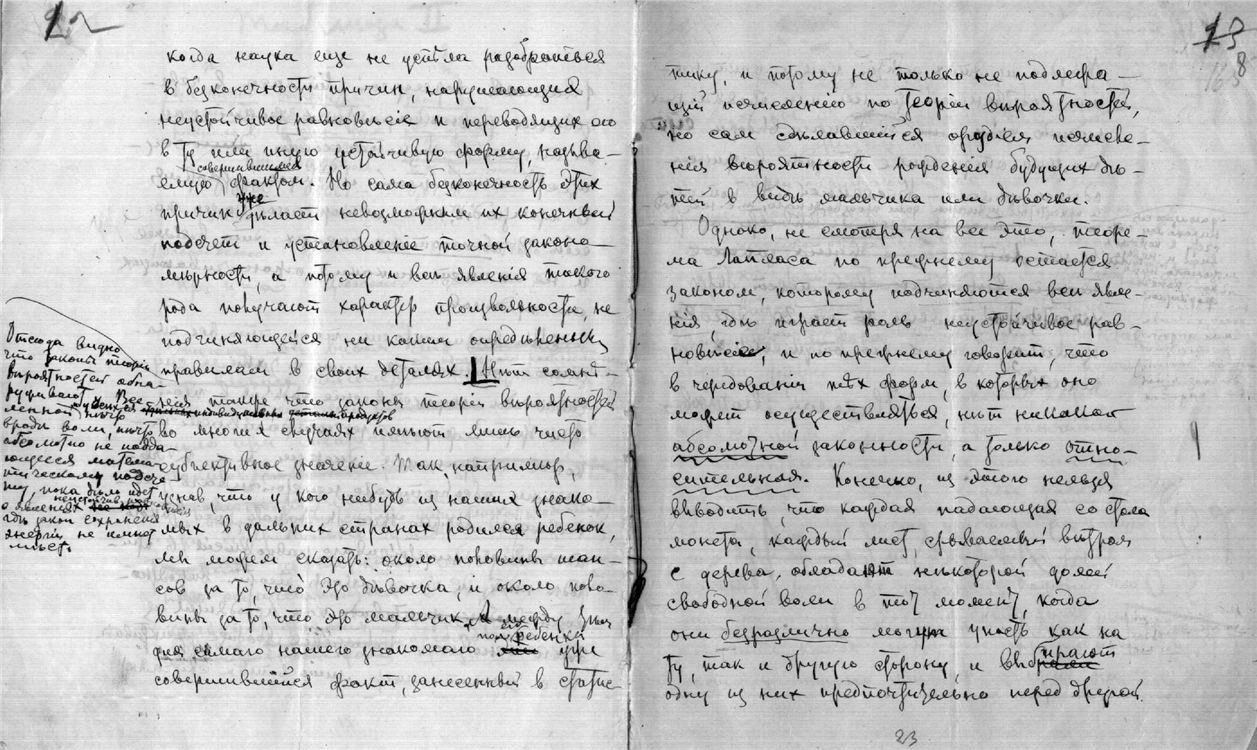 12
когда наука еще не успѣла разобраться
в безконечности причин, нарушающих
неустойчивое равновѣсіе и переводящих его
в ту или иную устойчивую форму, называ-
емую совершившимся
фактом. Но сама безконечность этих
причин уже дѣлает невозможным их конечный
подсчет и установленіе точной законо-
мѣрности, а потому и всѣ явленія такого
рода получают характер произвольности, не
подчиняющейся ни каким опредѣленным
правилам в своих деталях. Нѣт сомнѣ-
нія также что законы теоріи вѣроятностей
во многих случаях имѣют лишь чисто
субъективное значеніе. Так, например,
узнав, что у кого нибудь из наших знако-
мых в дальних странах родился ребенок,
мы можем сказать: около половины шан-
сов за то, что это дѣвочка, и около поло-
вины за то, что это мальчик. А между тѣм
для самого нашего знакомого пол его ребенка уже
совершившийся факт, занесенный в статис-
Отсюда видно
что законы теоріи
вѣроятностей обна-
руживают во Все-
ленной нѣчто
вродѣ воли, нѣчто
абсолютно не подда-
ющееся математи-
ческому подсче-
ту, пока дѣло идет
о явленіях
гдѣ закон сохраненія
энергіи не имѣет
мѣста
13
8
тику, и потому не только не подлежа-
щій измѣненію по теоріи вѣроятностей,
но сам сдѣлавшійся орудіем измѣне-
нія вѣроятности рожденія будущих дѣ-
тей в видѣ мальчика или дѣвочки.
Однако, не смотря на все это, теоре-
ма Лапласа по прежнему остается
законом, которому подчиняются всѣ явле-
нія, гдѣ играет роль неустойчивое рав-
новѣсіе, и по прежнему говорит, что
в чередованіи тѣх форм, в которых оно
может осуществляться, нѣт никакой
абсолютной законности, а только отно-
сительная. Конечно, из этого нельзя
выводить, что каждая падающая со стола
монета, каждый лист, срываемый вѣтром
с дерева, обладают нѣкоторой долей
свободной воли в тот момент, когда
они безразлично могут упасть как на
ту, так и другую сторону, и выбирают
одну из них предпочтительно перед другой.
23